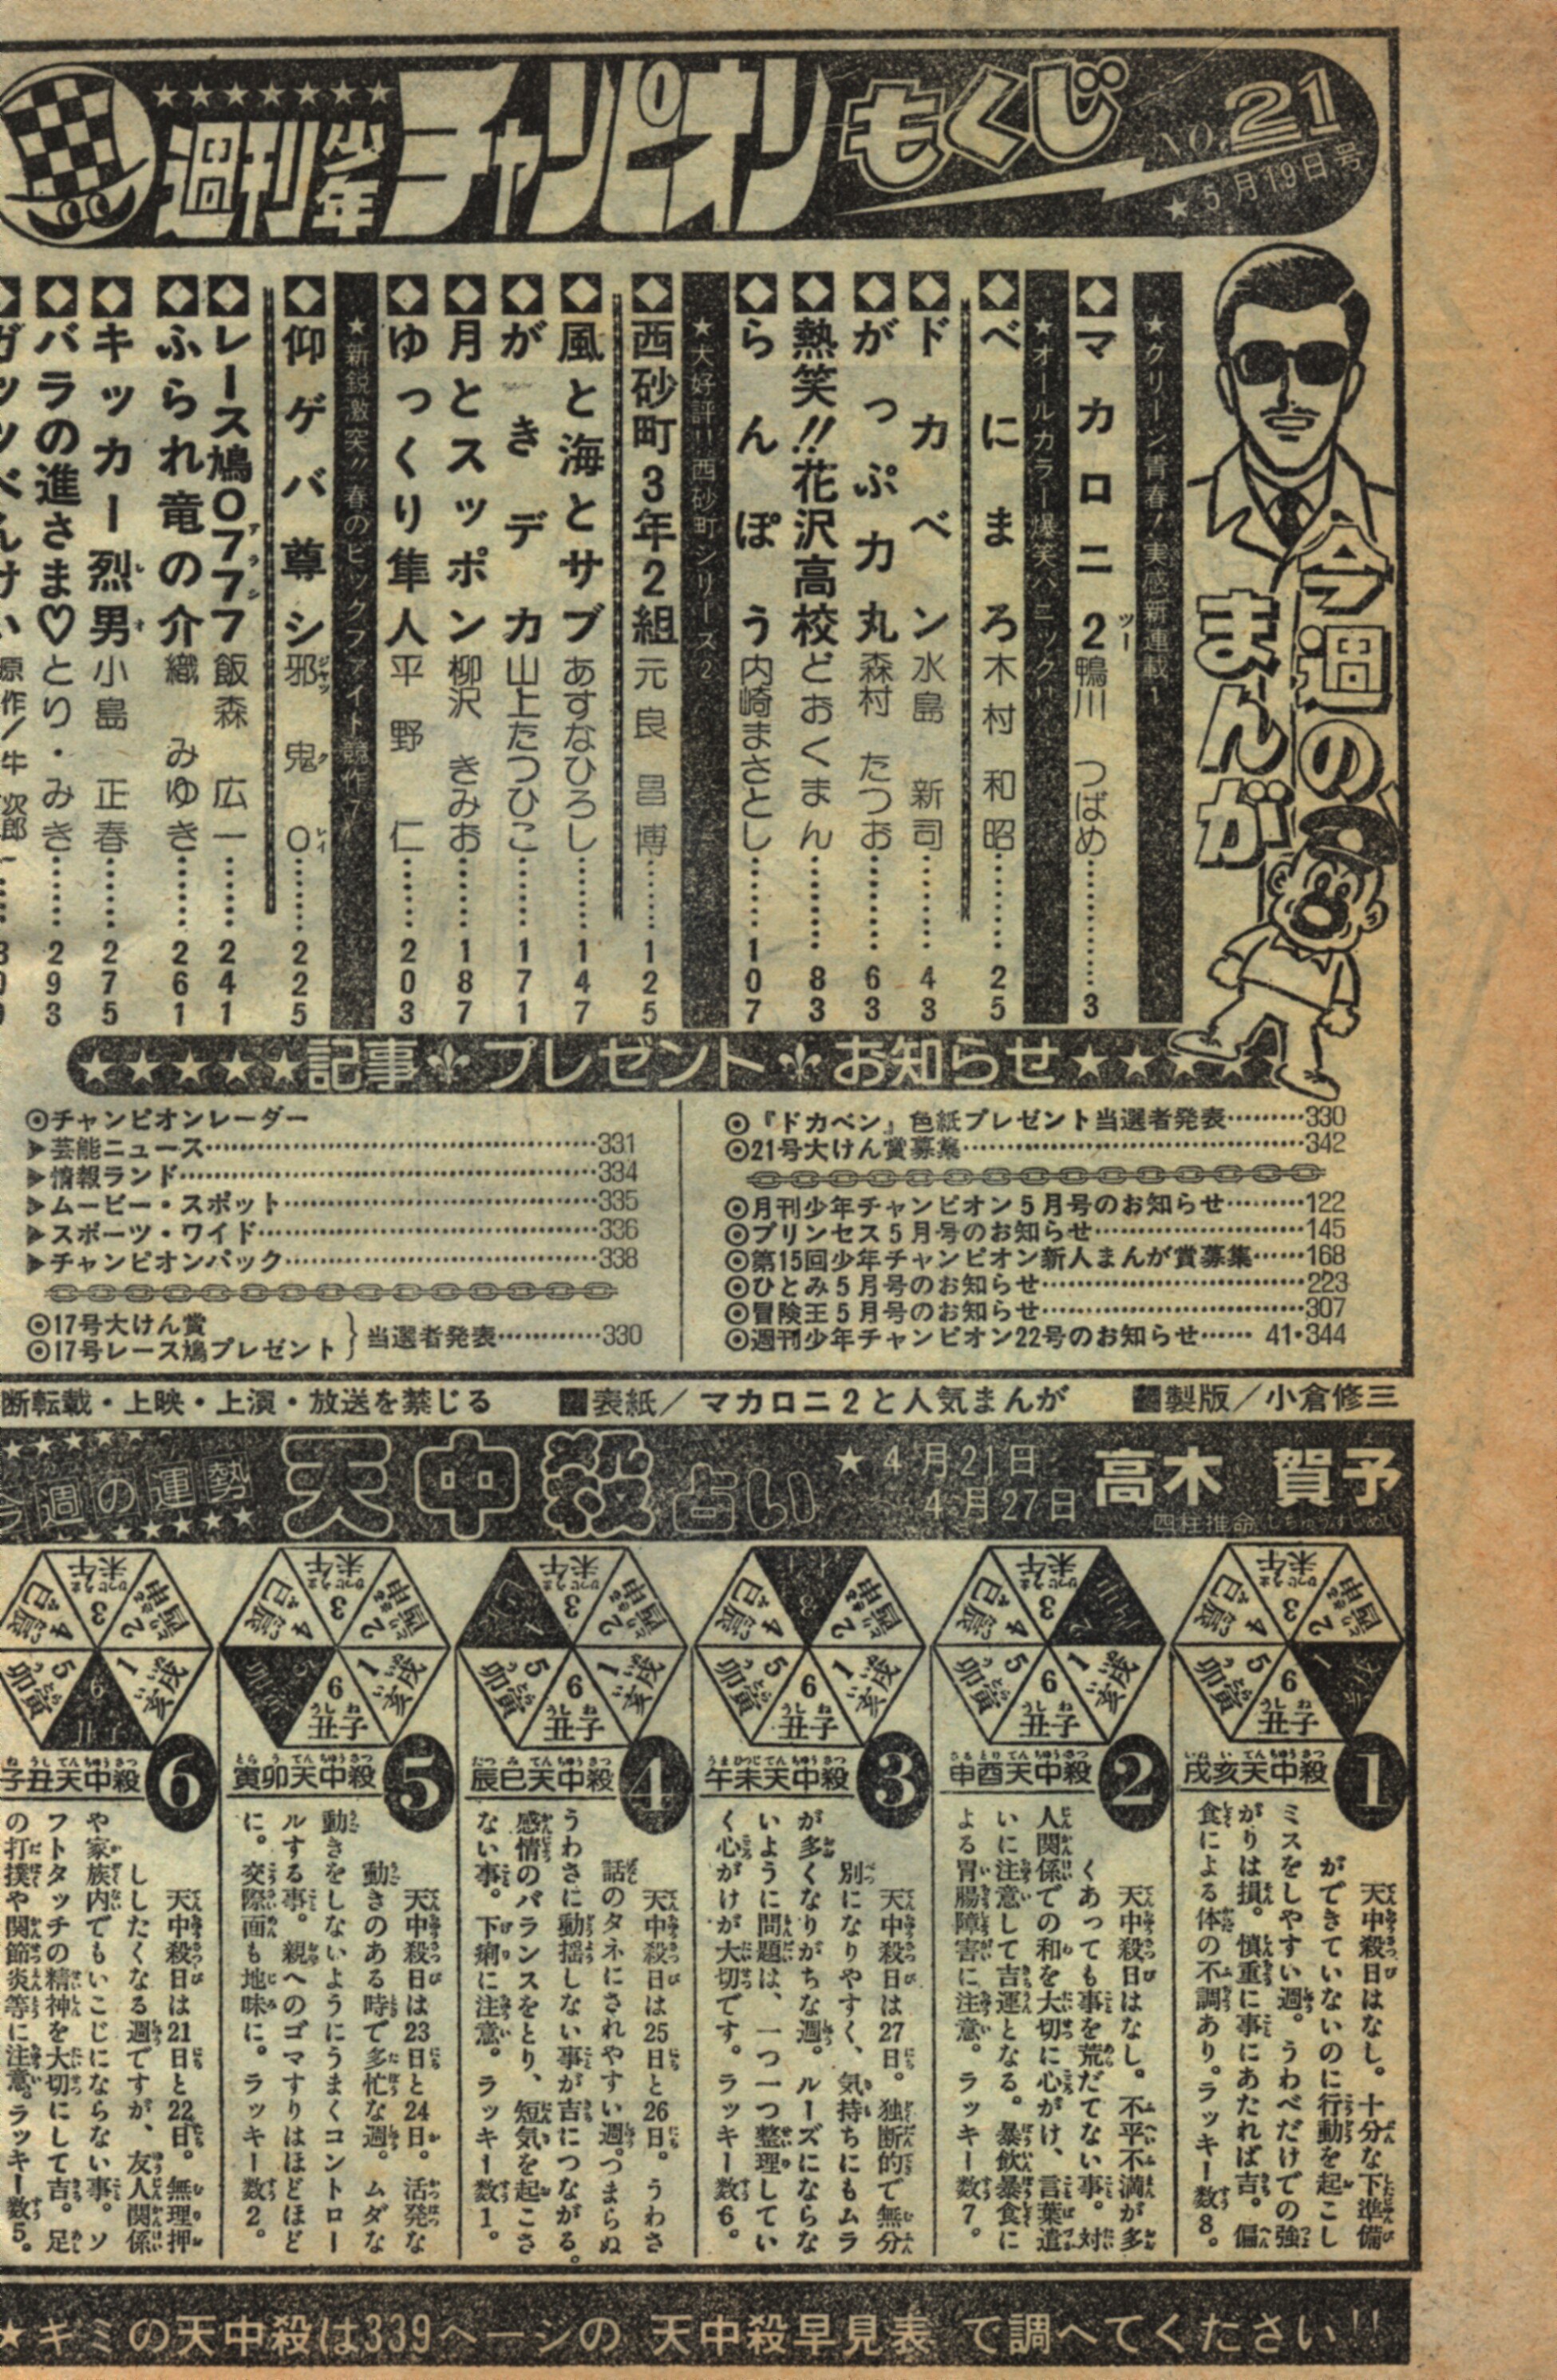 週刊少年チャンピオンもくじ
NO.21
★5月19日号
今週のまんが
★クリーン青春!実感新連載!
マカロニ2 鴨川つばめ…………3
★オールカラー爆笑パニック!!
べにまろ 木村和昭………25
ドカベン 水島新司………43
がっぷ力丸 森村たつお………63
熱笑!!花沢高校 どおくまん………83
らんぽう 内崎まさとし………107
★大好評!!西砂町シリーズ2
西砂町3年2組 元良昌博………125
風と海とサブ あすなひろし………147
がきデカ 山上たつひこ………171
月とスッポン 柳沢きみお………187
ゆっくり隼人 平野仁………203
★新鋭激突!!春のビックファイト競作7
仰ゲバ尊シ 邪鬼0………225
レース鳩0777 飯森広一………241
ふられ竜の介 織みゆき………261
キッカー烈男 小島正春………275
バラの進さま♡ とり・みき………293
ガッツべんけい 原作/牛次郎
記事 プレゼント お知らせ
◎チャンピオンレーダー
▶芸能ニュース…………331
▶情報ランド…………334
▶ムービー・スポット…………335
▶スポーツ・ワイド…………336
▶チャンピオンパック…………338
◎17号大けん賞
◎17号レース鳩プレゼント
当選者発表…………330
◎『ドカベン』色紙プレゼント当選者発表………330
◎21号大けん賞募集…………342
◎月刊少年チャンピオン5月号のお知らせ………122
◎プリンセス5月号のお知らせ…………145
◎第15回少年チャンピオン新人まんが賞募集……168
◎ひとみ5月号のお知らせ…………223
◎冒険王5月号のお知らせ…………307
◎週刊少年チャンピオン22号のお知らせ…… 41・344
断転載・上映・上演・放送を禁じる
表紙/マカロニ2と人気まんが
製版/小倉修三
今週の運勢
天中殺占い
★4月21日
4月27日
高木賀予
四柱推命
1
戌亥天中殺
天中殺日はなし。十分な下準備
ができていないのに行動を起こし
ミスをしやすい週。うわべだけでの強
がりは損。慎重に事にあたれば吉。偏
食による体の不調あり。ラッキー数8。
2
申酉天中殺
天中殺日はなし。不平不満が多
くあっても事を荒だてない事。対
人関係での和を大切に心がけ、言葉遣
いに注意して吉運となる。暴飲暴食に
よる胃腸障害に注意。ラッキー数7。
3
午未天中殺
天中殺日は27日。独断的で無分
別になりやすく、気持ちにもムラ
が多くなりがちな週。ルーズにならな
いように問題は、一つ一つ整理してい
く心がけが大切です。ラッキー数6。
4
辰巳天中殺
天中殺日は25日と26日。うわさ
話のタネにされやすい週。つまらぬ
うわさに動揺しない事が吉につながる。
感情のバランスをとり、短気を起こさ
ない事。下痢に注意。ラッキー数1。
5
寅卯天中殺
天中殺日は23日と24日。活発な
動きのある時で多忙な週。ムダな
動きをしないようにうまくコントロー
ルする事。親へのゴマすりはほどほど
に。交際面も地味に。ラッキー数2。
6
子丑天中殺
天中殺日は21日と22日。無理押
ししたくなる週ですが、友人関係
や家族内でもいこじにならない事。ソ
フトタッチの精神を大切にして吉。足
の打撲や関節炎等に注意。ラッキー数5。
★キミの天中殺は339ページの 天中殺早見表 で調べてください!!